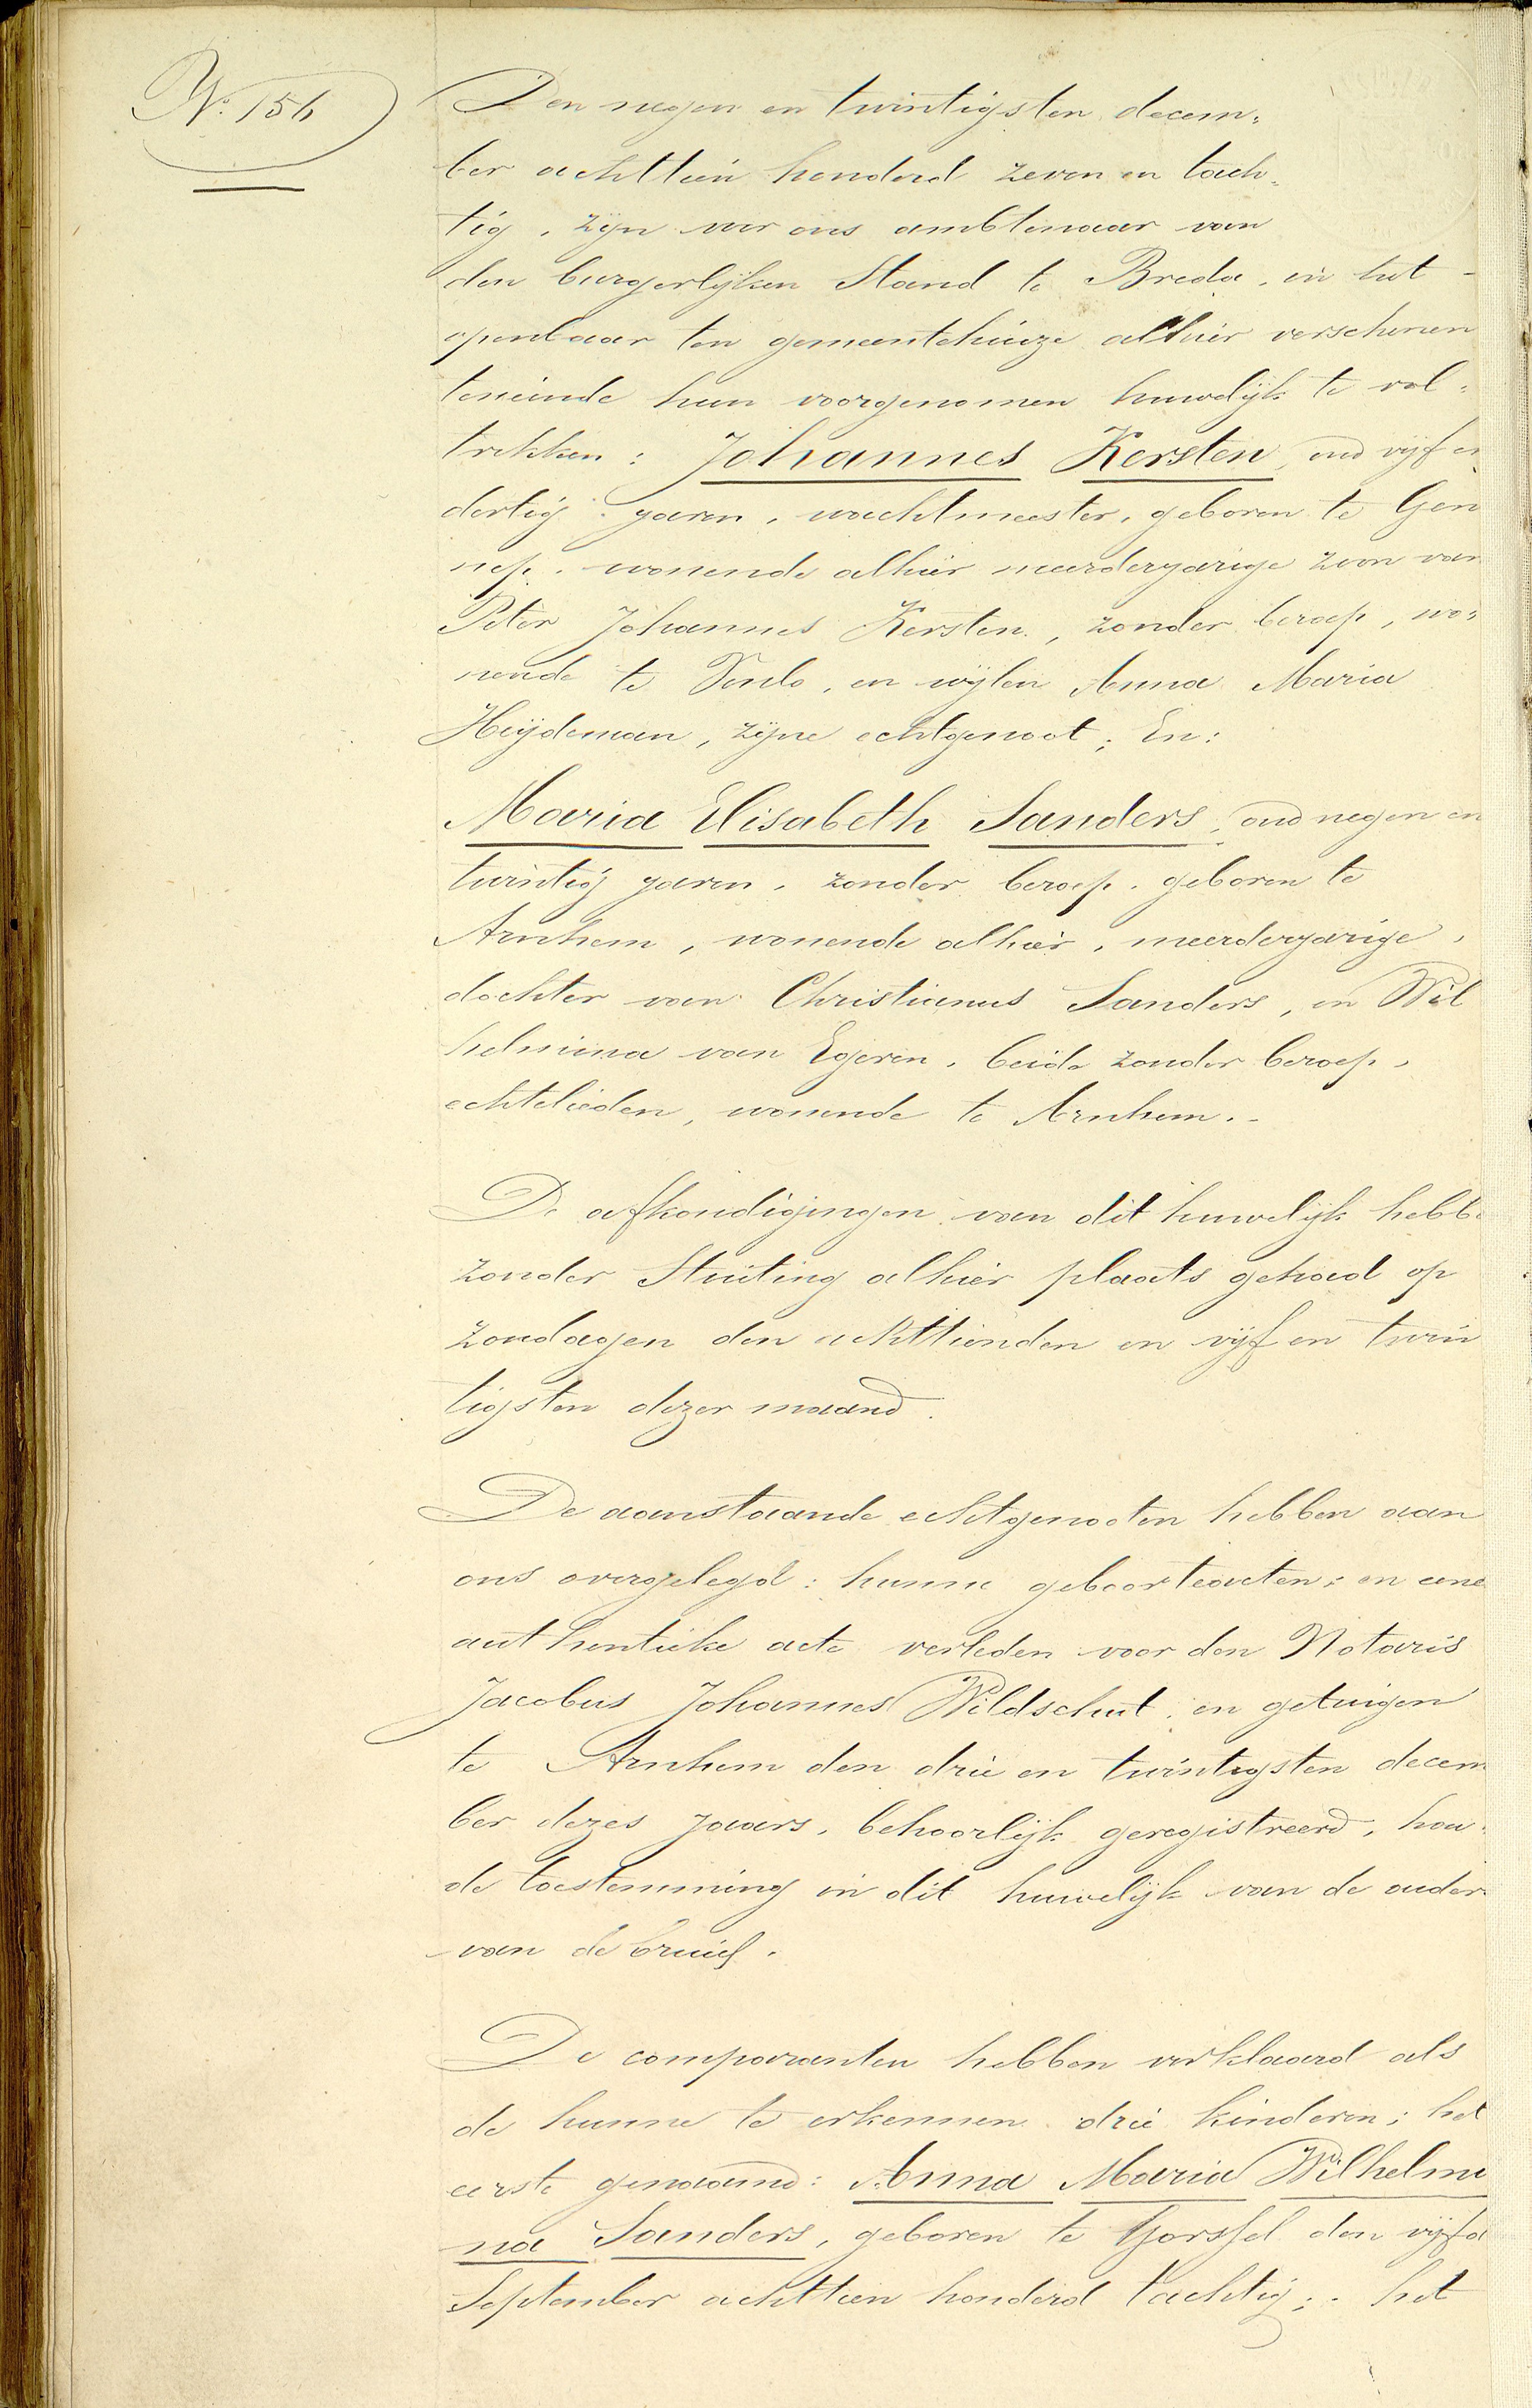 No. 156
Den negen en twintigsten decem„
ber achttien honderd zeven en tach„
tig, zijn voor ons ambtenaar van
den burgerlijken Stand te Breda, in het
openbaar ten gemeentehuize alhier verschenen
teneinde hun voorgenomen huwelijk te vol„
trekken: Johannes Kersten, oud vijf en
dertig jaren, wachtmeester, geboren te Gen
nep, wonende alhier meerderjarige zoon van
Peter Johannes Kersten, zonder beroep, wo„
nende te Venlo, en wijlen Anna Maria
Heijdeman, zijne echtgenoot; En:
Maria Elisabeth Sanders, oud negen en
twintig jaren, zonder beroep, geboren te
Arnhem, wonende alhier, meerderjarige,
dochter van Christianus Sanders, en Wil
helmina van Egeren, beide zonder beroep,
echtelieden, wonende te Arnhem.-
De afkondigingen van dit huwelijk hebbe
zonder Stuiting alhier plaats gehad op
zondagen den achttienden en vijf en twin
tigsten dezer maand.
De aanstaande echtgenooten hebben aan
ons overgelegd: hunne geboorteacten; en eene
authentieke acte verleden voor den Notaris
Jacobus Johannes Wildschut, en getuigen
te Arnhem den drie en twintigsten decem
ber dezes jaars, behoorlijk geregistreerd, hou„
de toestemming in dit huwelijk van de ouder
van de bruid.
De comparanten hebben verklaard als
de hunne te erkennen drie kinderen; het
eerste genaamd: Anna Maria Wilhelmi
na Sanders, geboren te Gorssel den vijfd
September achttien honderd tachtig; het